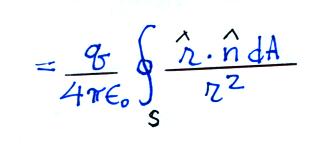 = \frac{q}{4\pi\epsilon_0} \oint_S \frac{\hat{r} \cdot \hat{n} \, dA}{r^2}